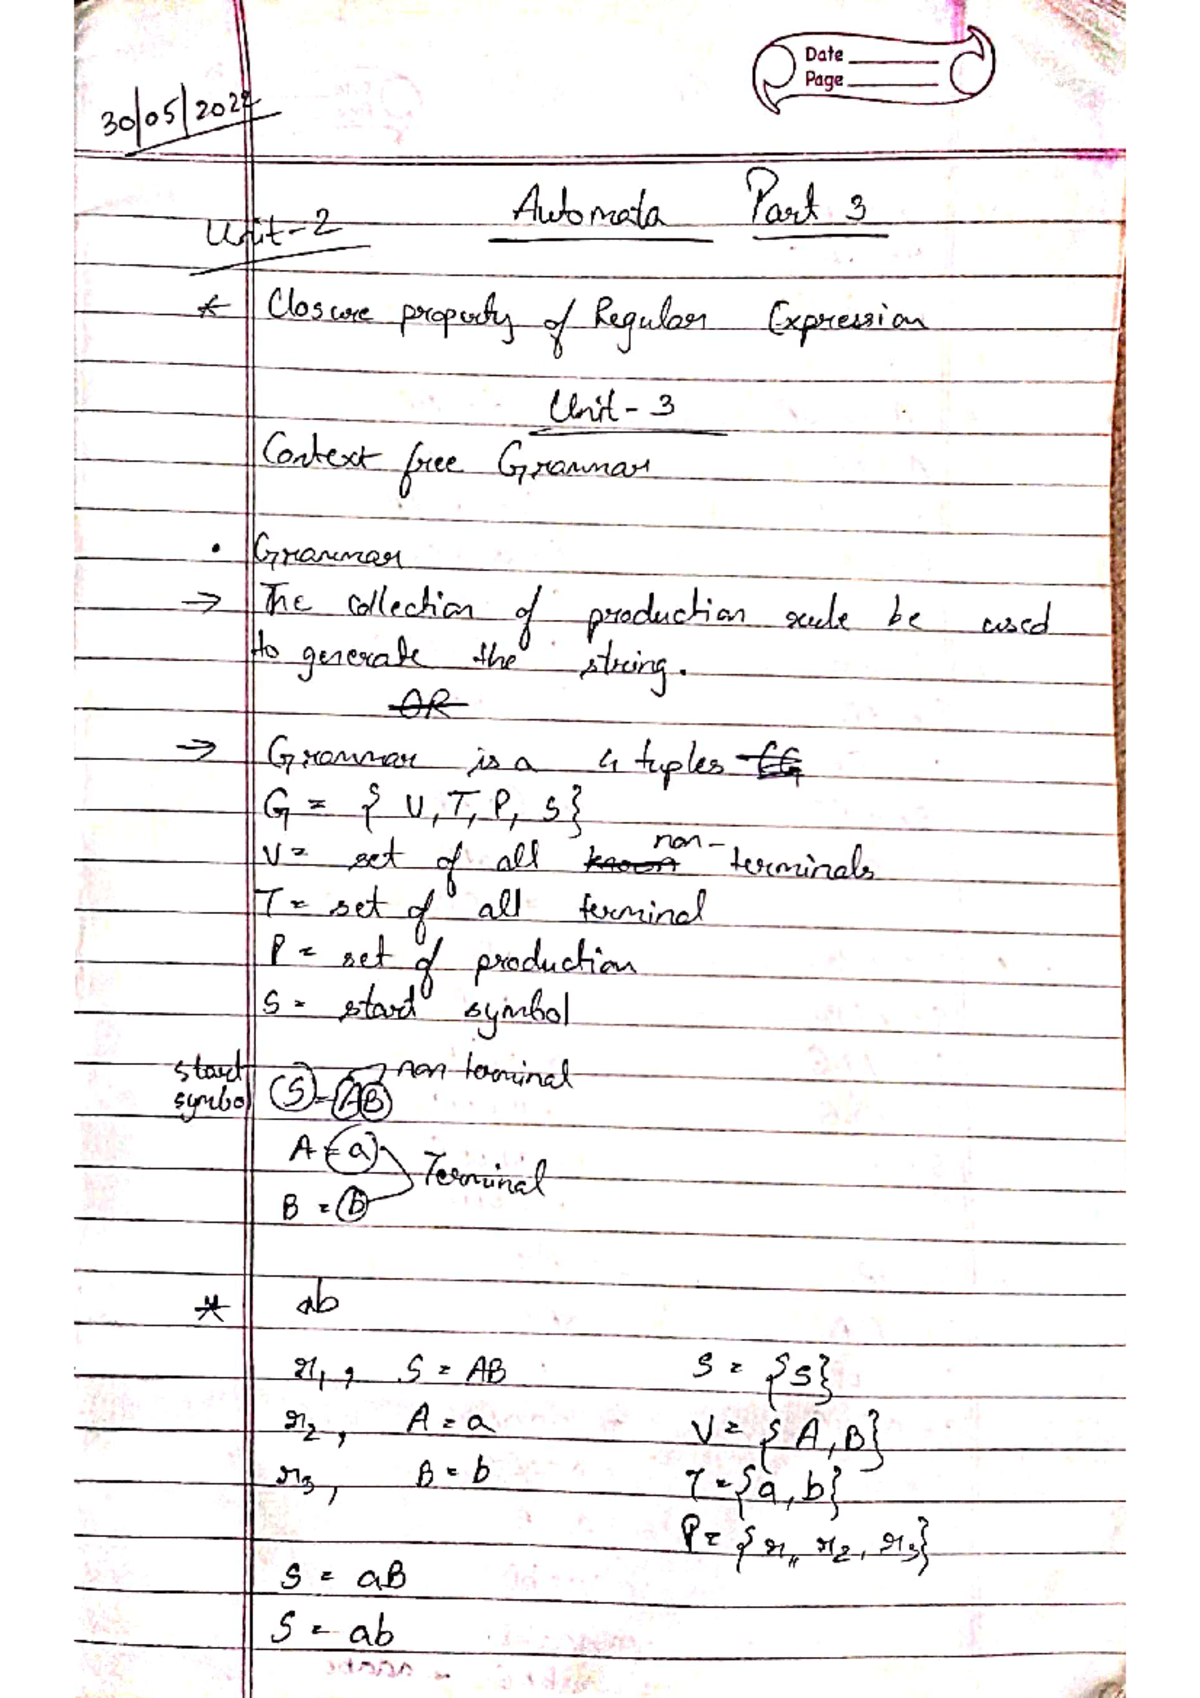 Date
Page
30/05/2022
Automata Part 3
Unit-2
* Closure property of Regular Expression
Unit-3
Context free Grammar
• Grammar
→ The collection of production rule be used
to generate the string.
OR
→ Grammar is a 4 tuples
G = { V, T, P, S}
V = set of all non-terminals
T = set of all terminal
P = set of production
S = start symbol
start symbol S = AB non terminal
A = a
Terminal
B = b
* ab
r1, S = AB S = {S}
r2, A = a V = {A, B}
r3, B = b T = {a, b}
P = {r1, r2, r3}
S = aB
S = ab